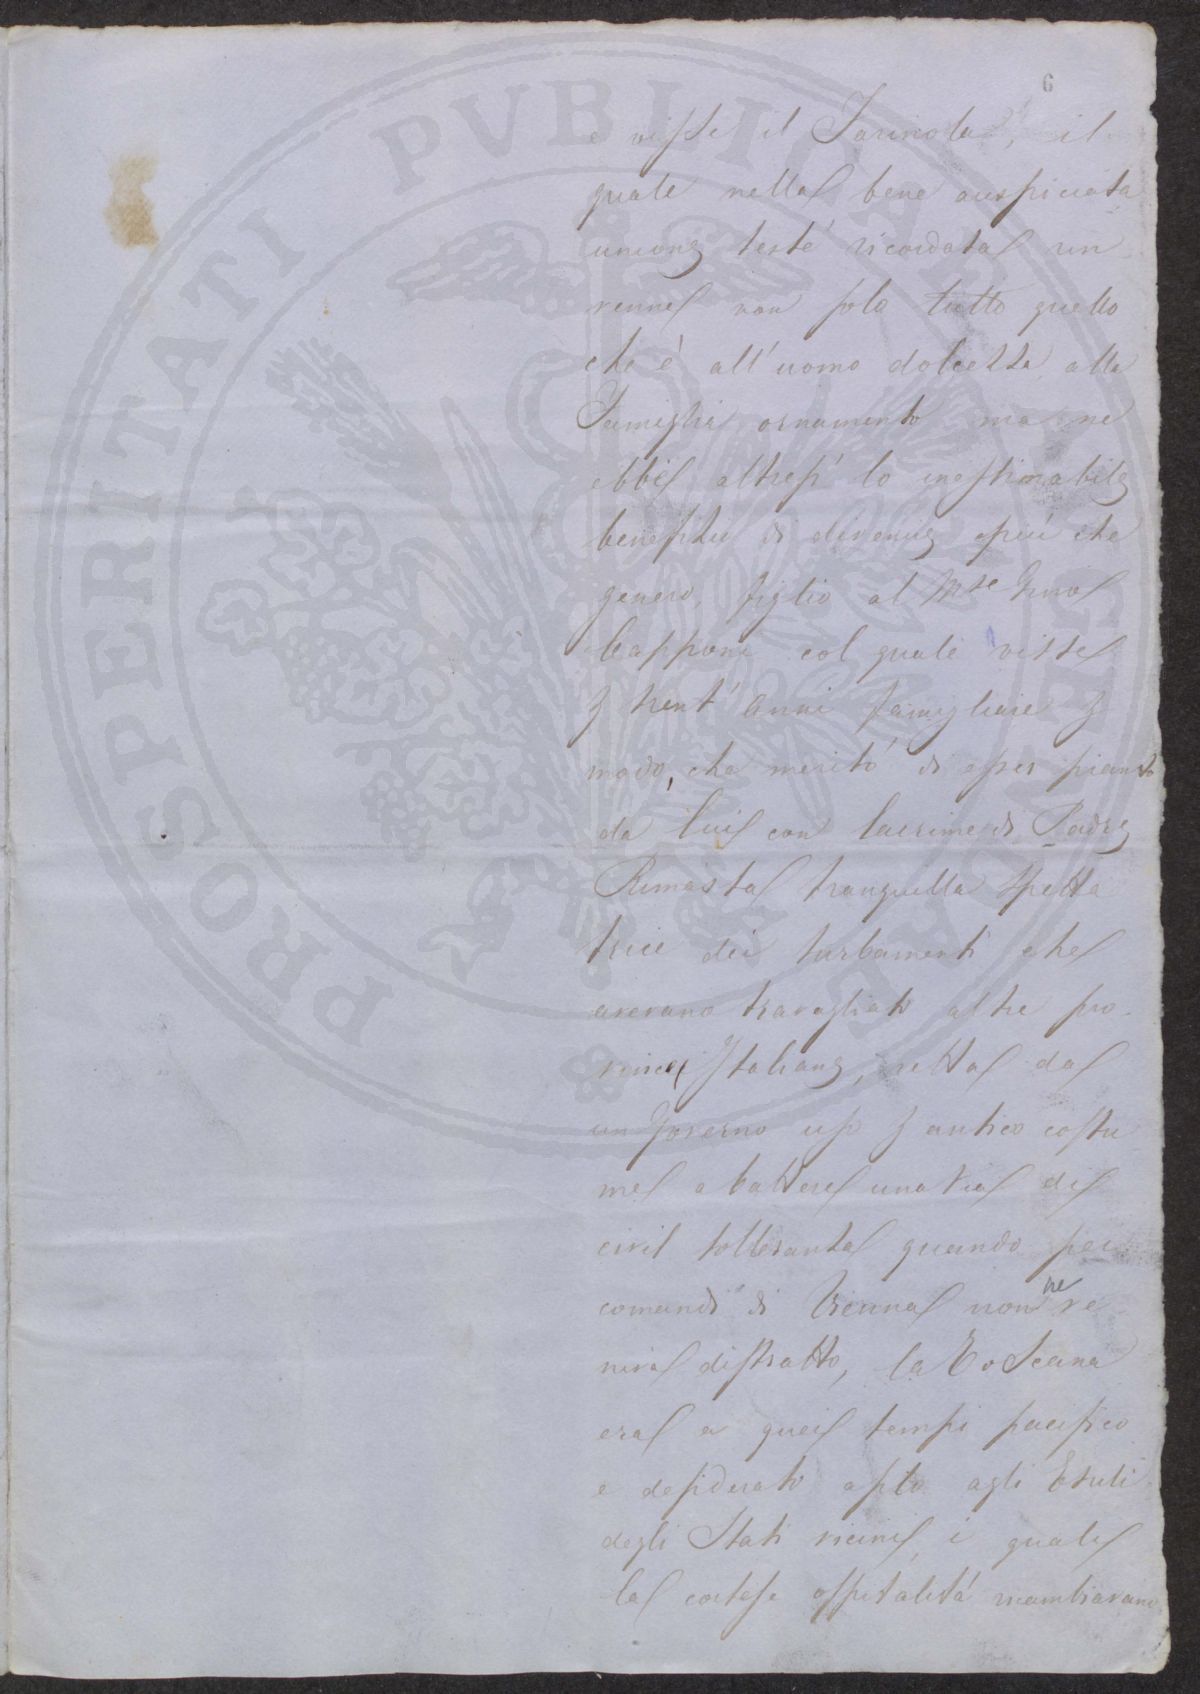 6
e visse il Farinola, il
quale nella bene auspiciata
unione testé ricordata rin
venne non solo tutto quello
che è all'uomo dolcezza alla
Famiglia ornamento ma ne
ebbe altresì lo inestimabile
benefizio di divenire più che
genero, figlio al Mse Gino
Capponi col quale visse
p trent'anni famigliare p
modo, che meritò di esser pianto
da lui con lacrime di Padre
Rimasta tranquilla spetta
trice dei turbamenti che
avevano travagliato altre pro-
vincie Italiane, retta da
un Governo uso p antico costu
me a battere una via di
civil tolleranza quando pei
comandi di Vienna non ne ve
niva distratto, la Toscana
era a quei tempi pacifico
e desiderato asilo agli Esuli
degli Stati vicini, i quali
la cortese ospitalità ricambiavano
PROSPERITATI PVBLICAE AVGENDAE